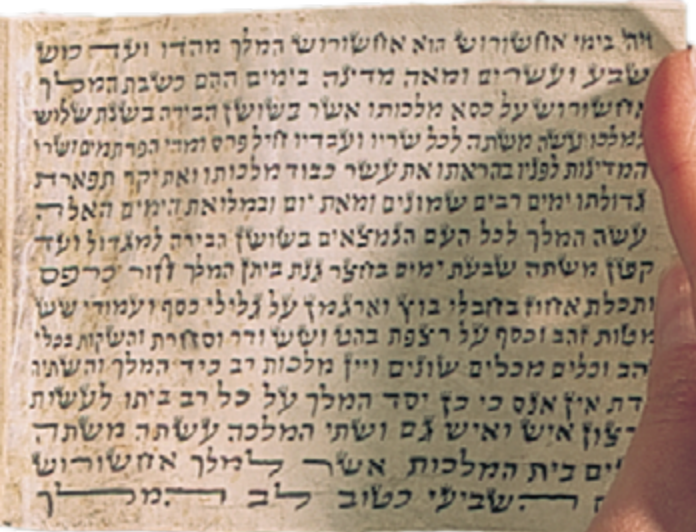 ויהי בימי אחשורוש הוא אחשורוש המלך מהדו ועד כוש
שבע ועשרים ומאה מדינה בימים ההם כשבת המלך
אחשורוש על כסא מלכותו אשר בשושן הבירה בשנת שלוש
למלכו עשה משתה לכל שריו ועבדיו חיל פרס ומדי הפרתמים ושרי
המדינות לפניו בהראתו את עשר כבוד מלכותו ואת יקר תפארת
גדולתו ימים רבים שמונים ומאת יום ובמלואת הימים האלה
עשה המלך לכל העם הנמצאים בשושן הבירה למגדול ועד
קטן משתה שבעת ימים בחצר גנת ביתן המלך חור כרפס
ותכלת אחוז בחבלי בוץ וארגמן על גלילי כסף ועמודי שש
מטות זהב וכסף על רצפת בהט ושש ודר וסחרת והשקות בכלי
זהב וכלים מכלים שונים ויין מלכות רב כיד המלך והשתיה
כדת אין אנס כי כן יסד המלך על כל רב ביתו לעשות
כרצון איש ואיש גם ושתי המלכה עשתה משתה
בית המלכות אשר למלך אחשורוש
השביעי כטוב לב המלך